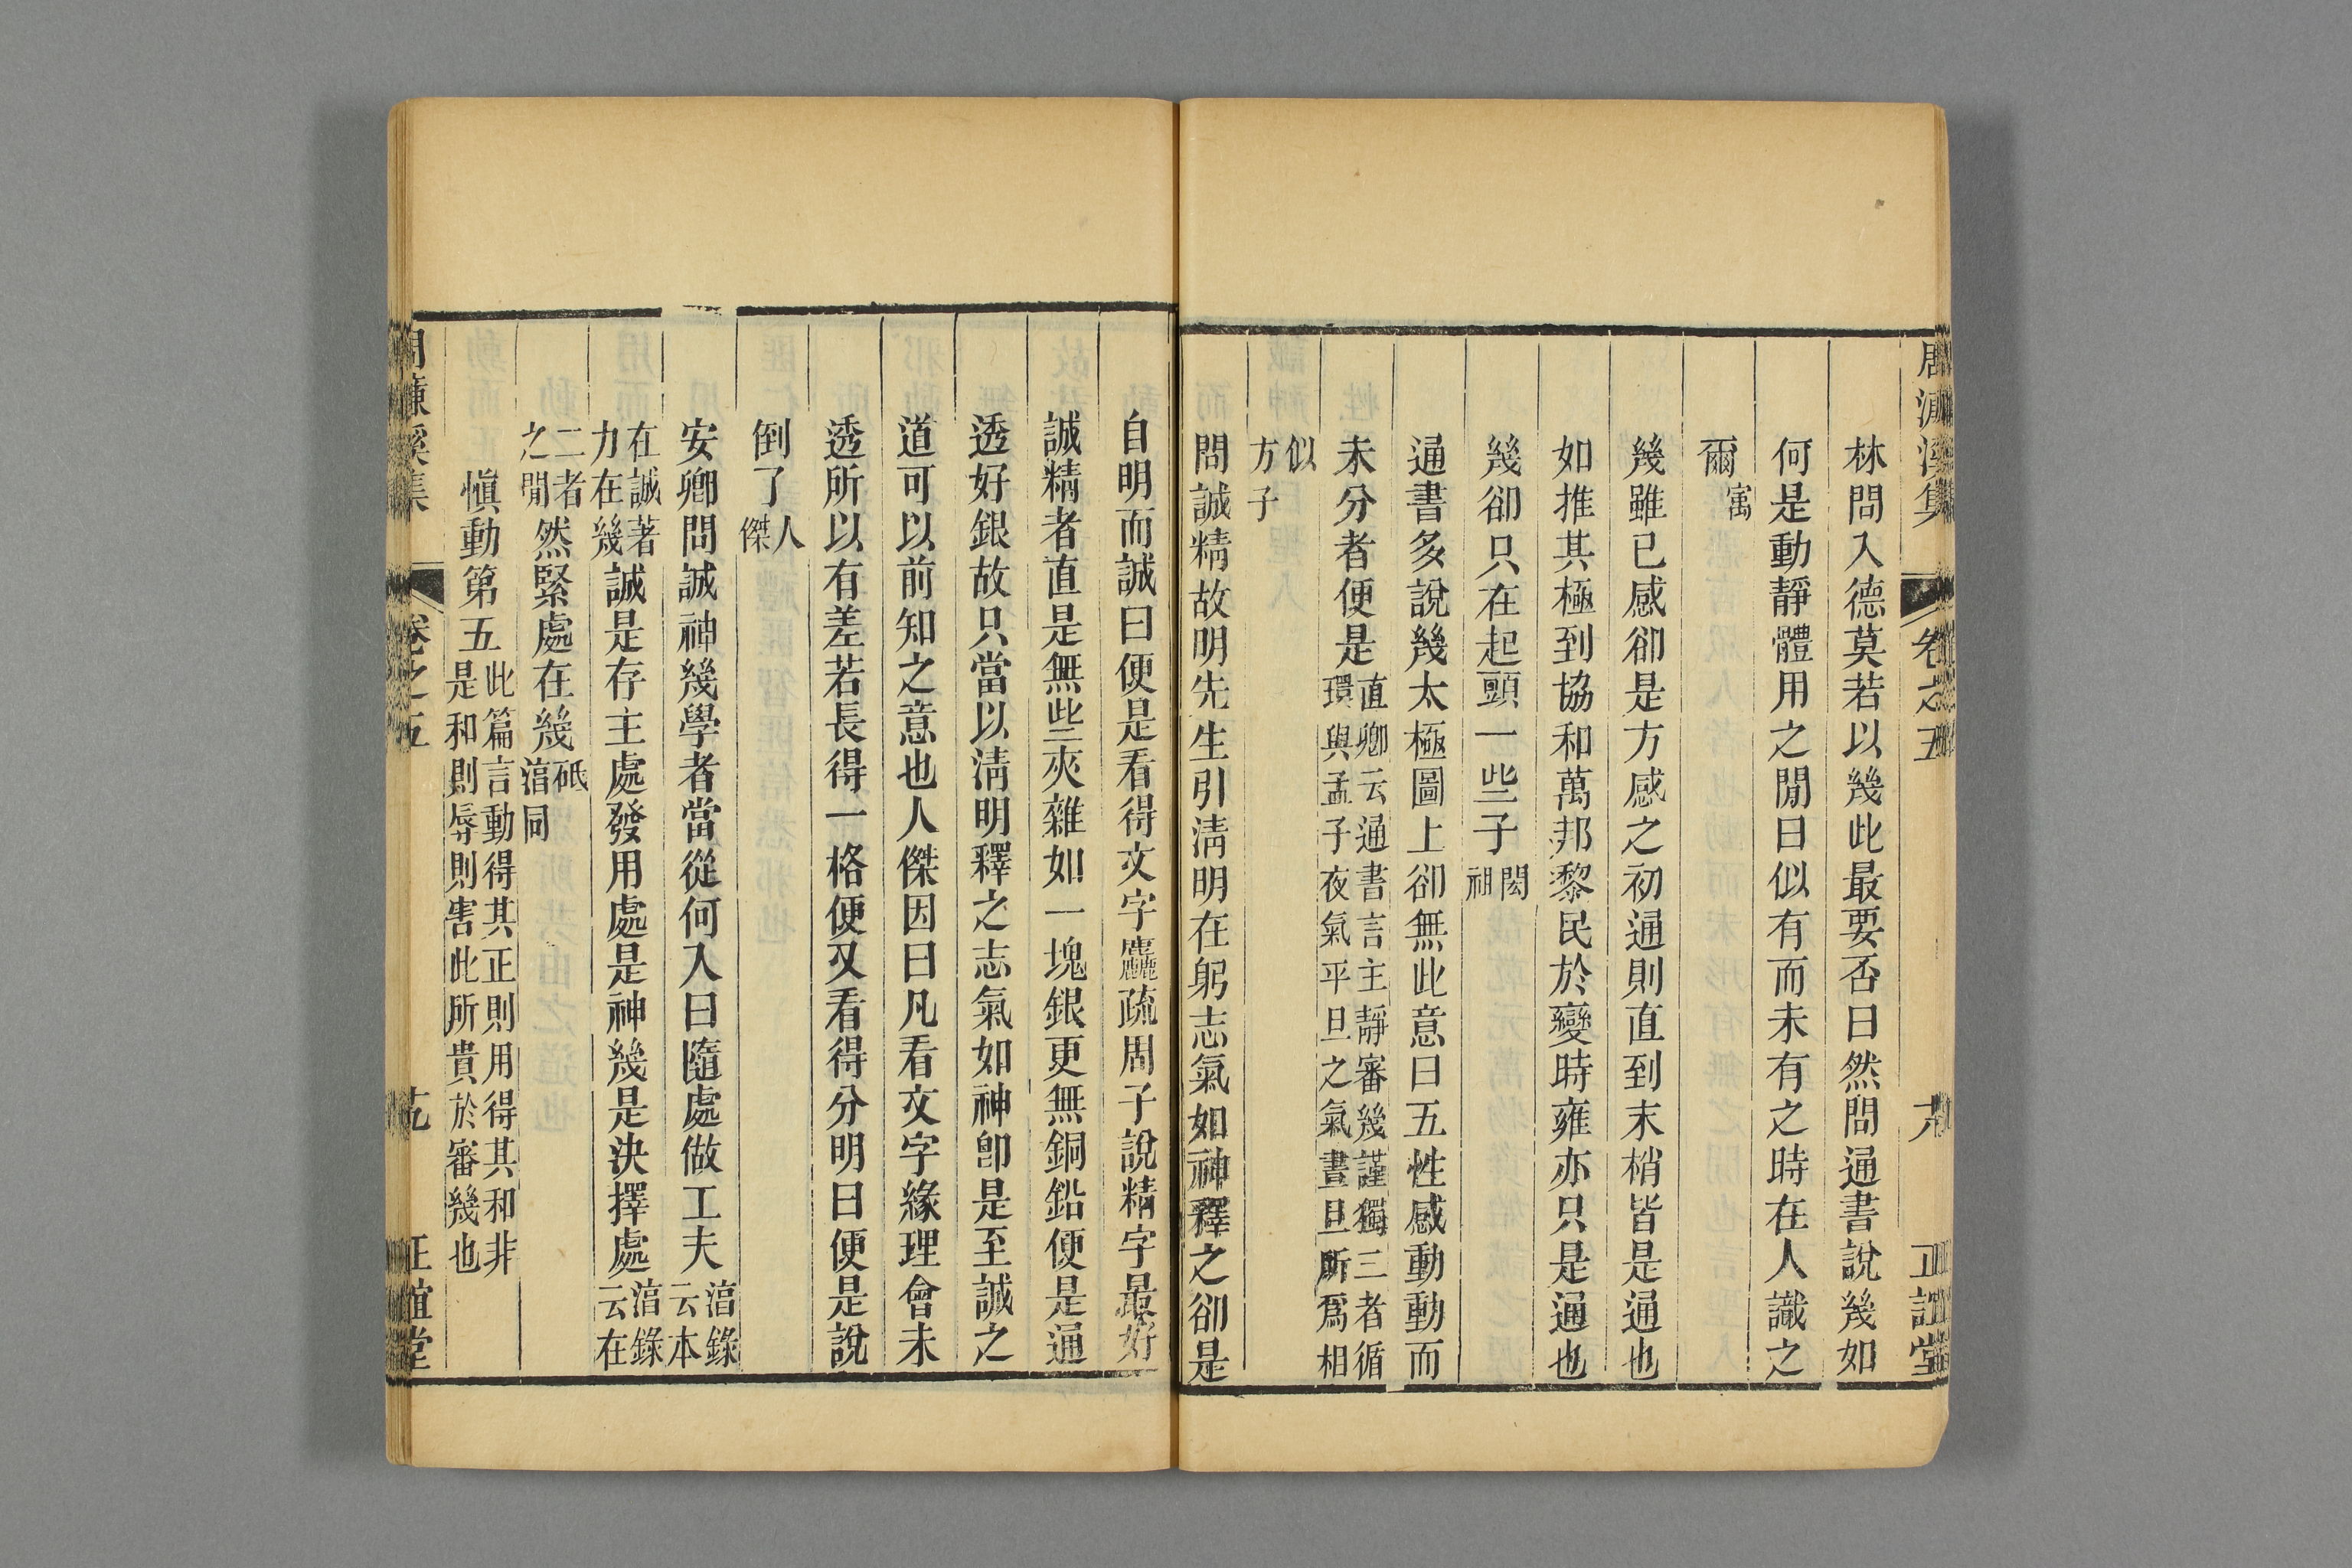 周濂溪集 卷之五 正誼堂
林問入德莫若以幾此最要否曰然問通書說幾如
何是動靜體用之閒曰似有而未有之時在人識之
爾㝢
幾雖已感卻是方感之初通則直到末梢皆是通也
如推其極到協和萬邦黎民於變時雍亦只是通也
幾卻只在起頭一些子閎祖
通書多說幾太極圖上卻無此意曰五性感動動而
未分者便是直卿云通書言主靜審幾謹獨三者循環與孟子夜氣平旦之氣晝旦所爲相
似方子
問誠精故明先生引淸明在躬志氣如神釋之卻是
自明而誠曰便是看得文字麤疏周子說精字最好
誠精者直是無些夾雜如一塊銀更無銅鉛便是通
透好銀故只當以淸明釋之志氣如神卽是至誠之
道可以前知之意也人傑因曰凡看文字緣理會未
透所以有差若長得一格便又看得分明曰便是說
倒了人傑
安卿問誠神幾學者當從何入曰隨處做工夫㵎錄云本
在誠著力在幾誠是存主處發用處是神幾是決擇處㵎錄云在
二者之閒然緊處在幾砥㵎同
愼動第五此篇言動得其正則用得其和非是和則辱則害此所貴於審幾也
周濂溪集 卷之五 正誼堂